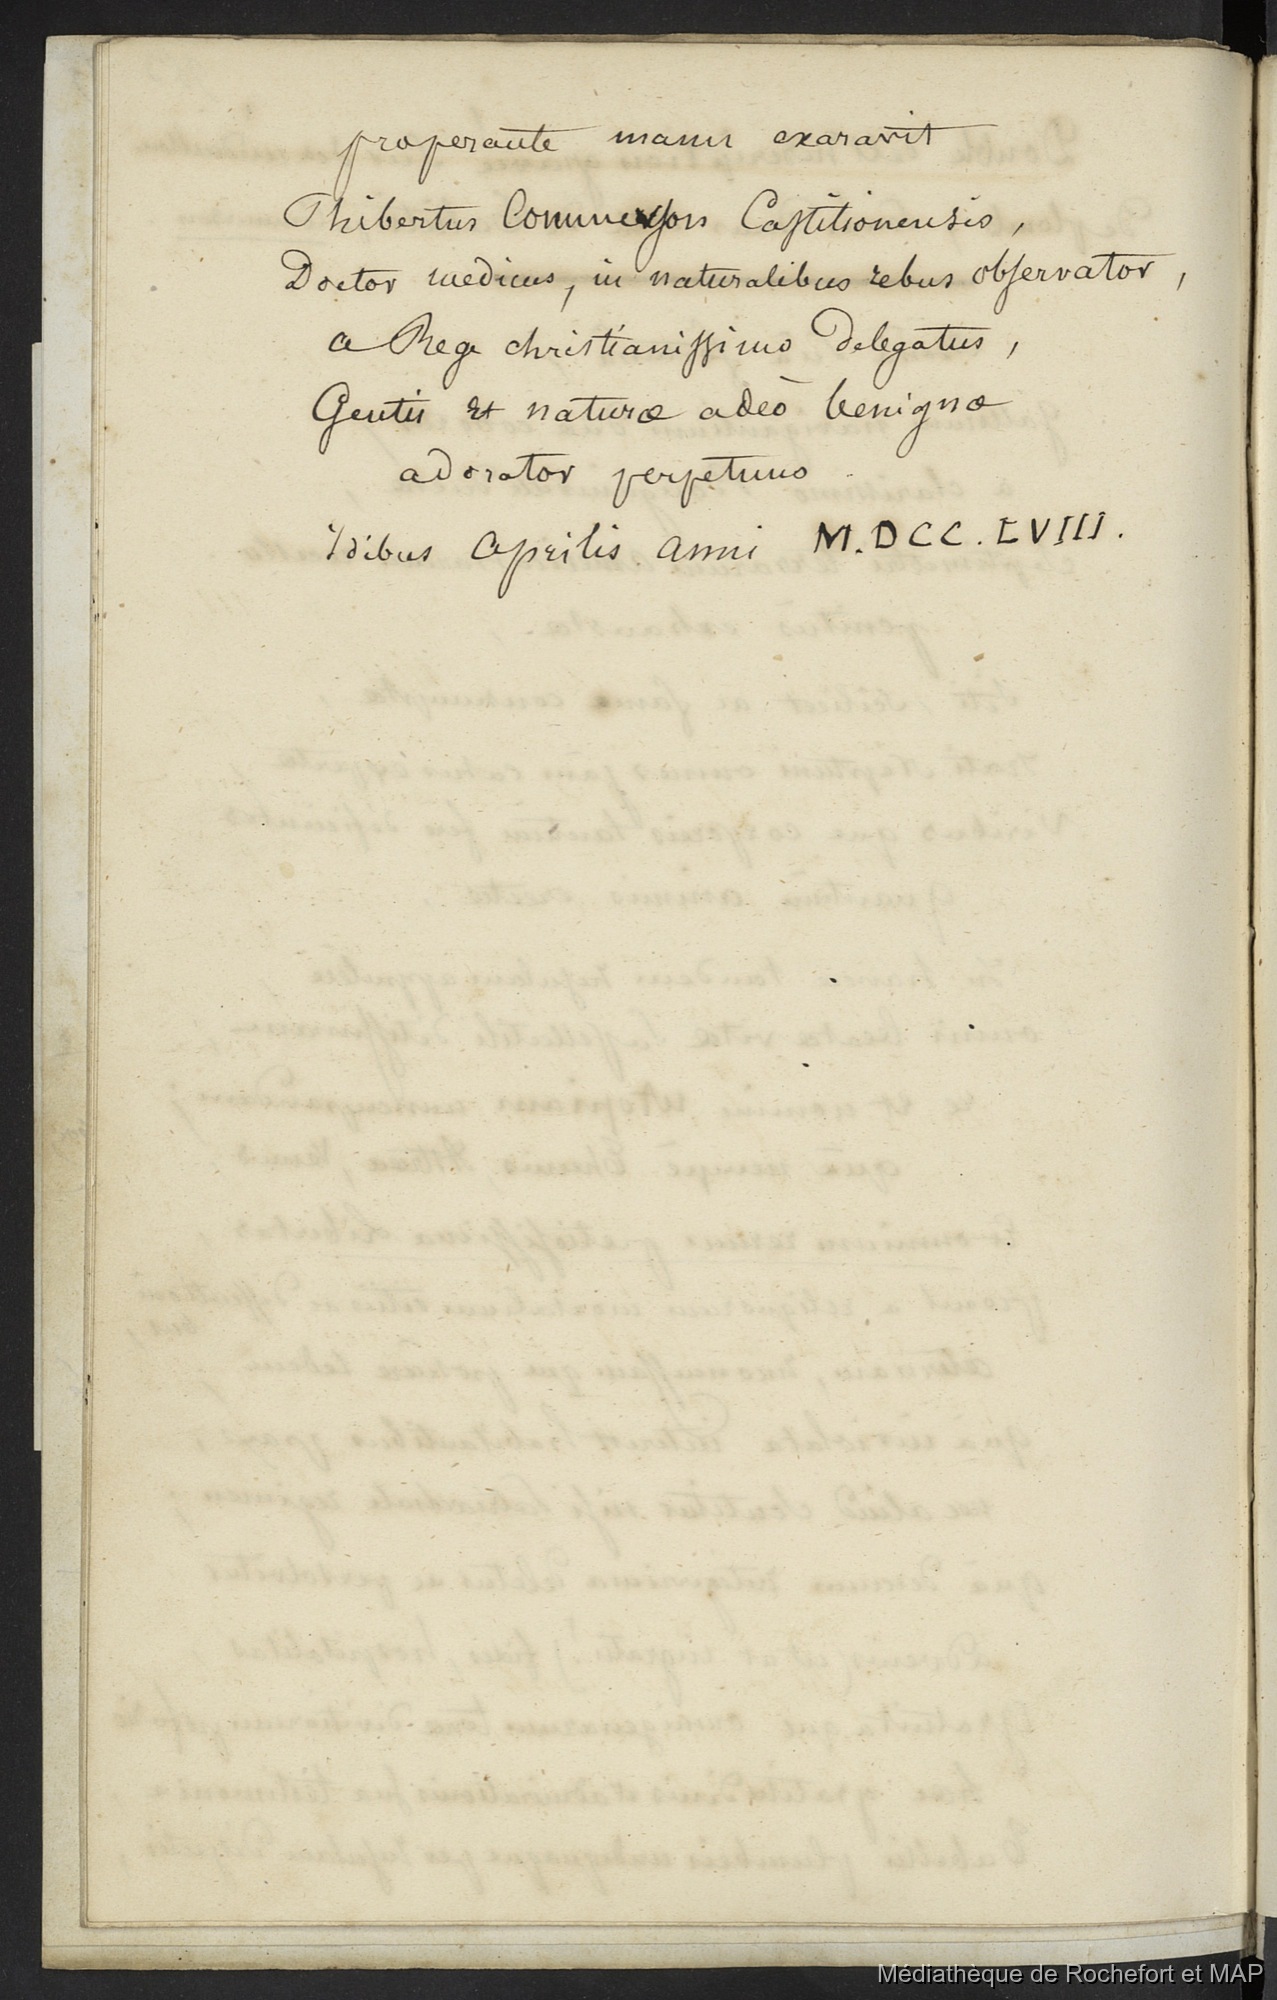 properante manu exaravit
Thibertus Commerson Castitionensis,
Doctor medicus, in naturalibus rebus observator,
a Rege christianissimo Delegatus,
Gentis et naturæ adeò benignæ
adorator perpetuus
idibus aprilis anni M.DCC.LVIII.
Médiathèque de Rochefort et MAP